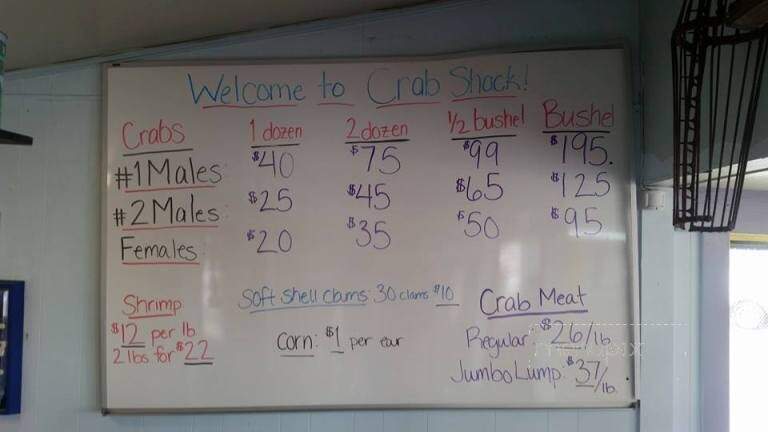 Welcome to Crab Shack!
Crabs 1 dozen 2 dozen 1/2 bushel Bushel
#1 Males: $40 $75 $99 $195.
#2 Males: $25 $45 $65 $125
Females: $20 $35 $50 $95
Shrimp
$12 per lb
2 lbs for $22
Soft Shell Clams: 30 clams $10
Corn: $1 per ear
Crab Meat
Regular: $26/lb
Jumbo Lump: $37/lb